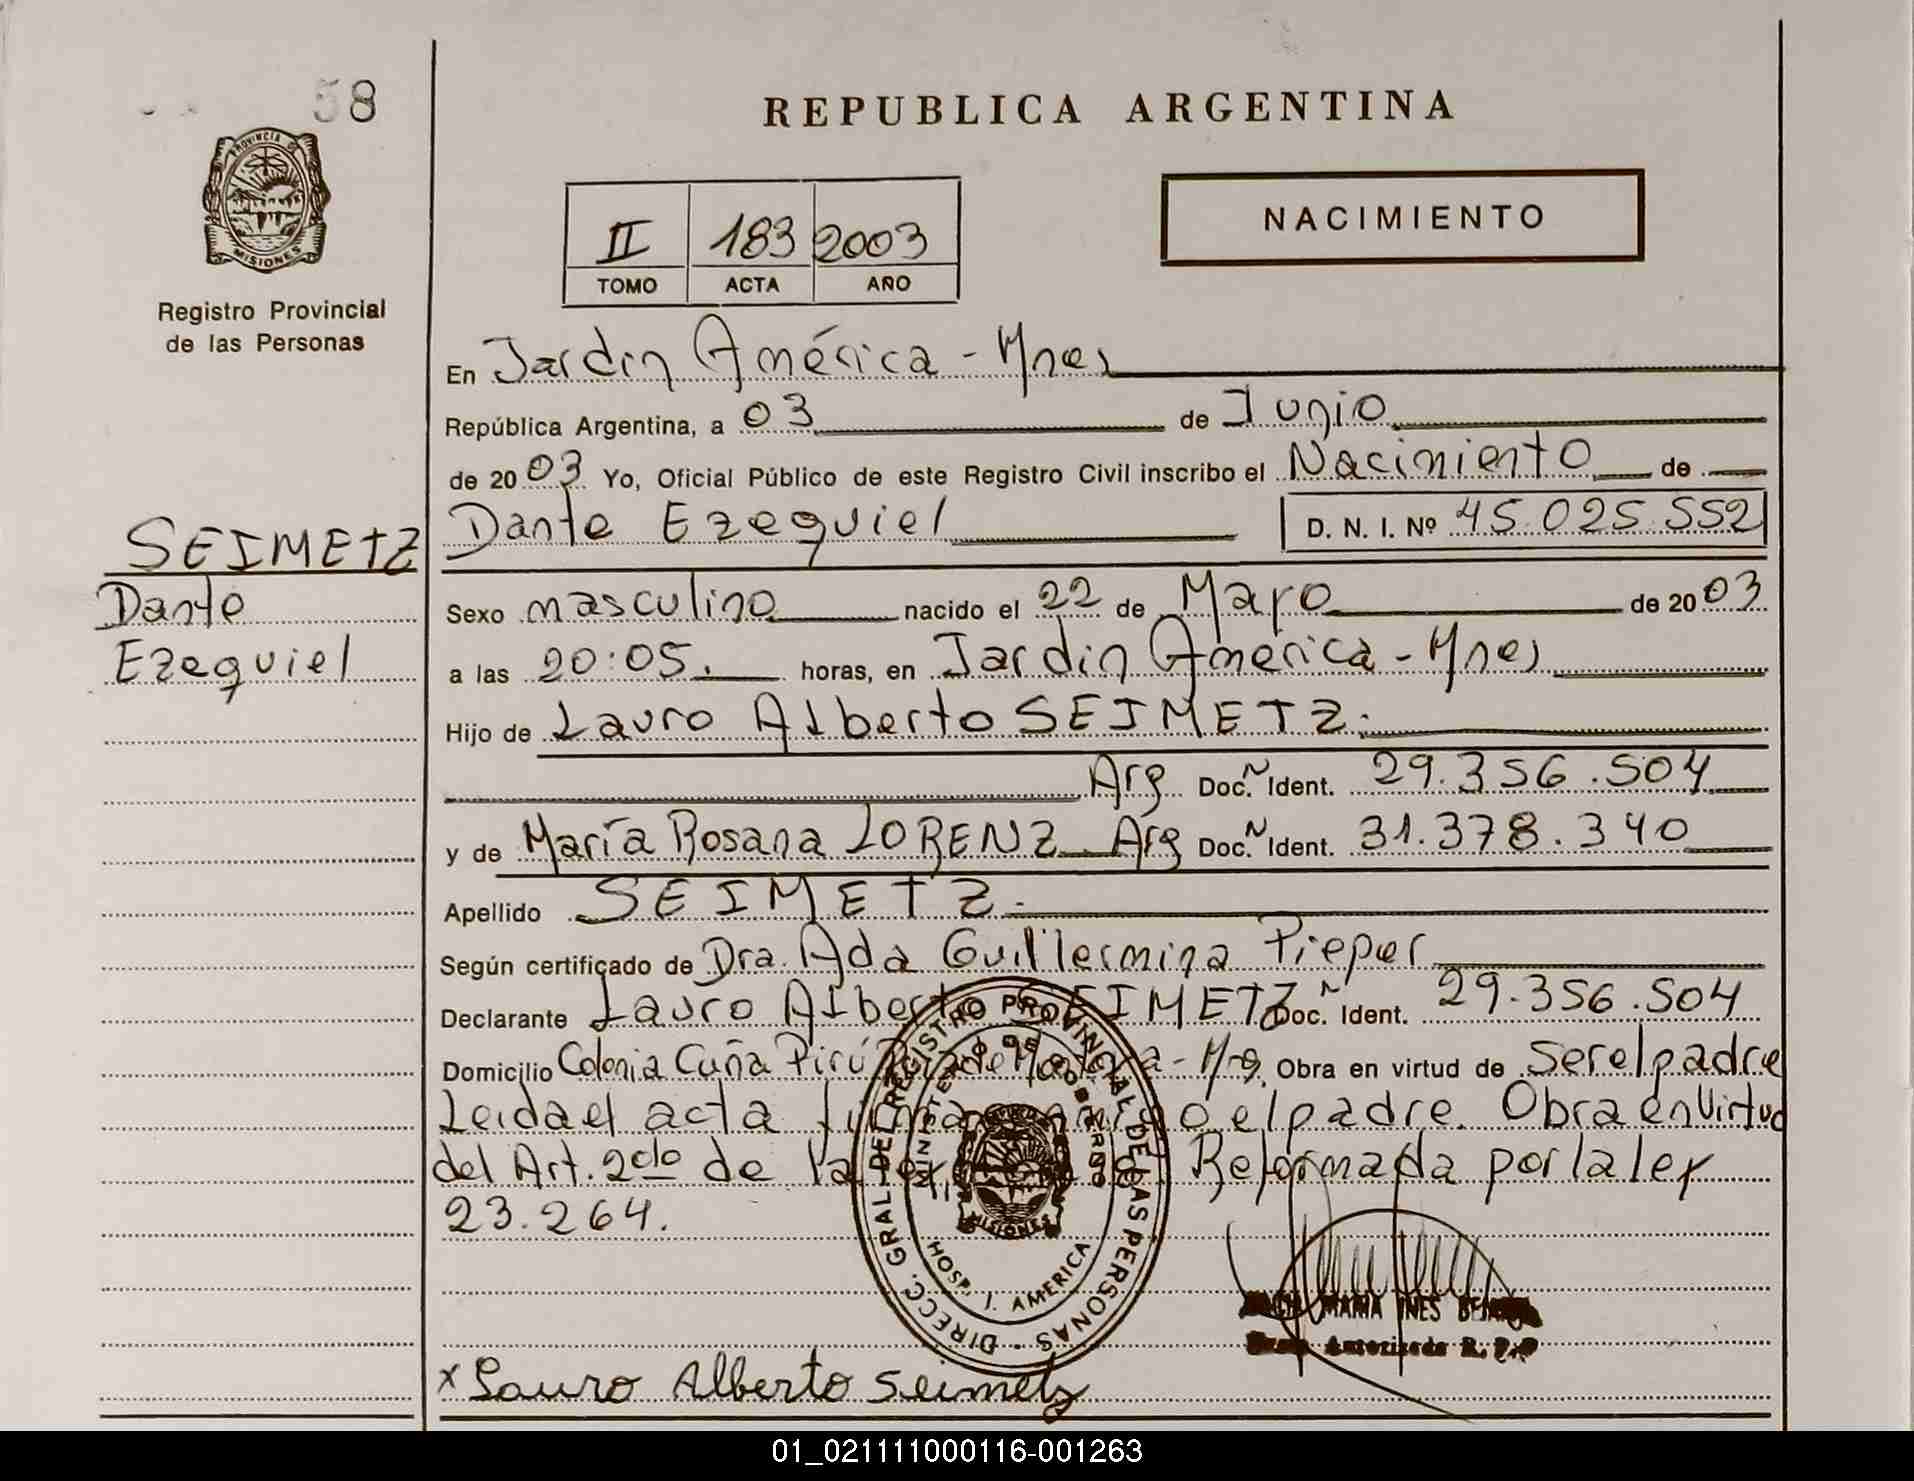 58
PROVINCIA DE
MISIONES
Registro Provincial
de las Personas
REPUBLICA ARGENTINA
II 183 2003
TOMO ACTA AÑO
NACIMIENTO
En Jardin América - Mnes
República Argentina, a 03 de Junio
de 2003 Yo, Oficial Público de este Registro Civil inscribo el Nacimiento de
SEIMETZ
Dante
Ezequiel
Dante Ezequiel D. N. I. Nº 45.025.552
Sexo masculino nacido el 22 de Mayo de 2003
a las 20:05. horas, en Jardin América - Mnes
Hijo de Lauro Alberto SEIMETZ.
Arg Doc. N Ident. 29.356.504
y de María Rosana LORENZ Arg Doc. N Ident. 31.378.340
Apellido SEIMETZ.
Según certificado de Dra. Ada Guillermina Pieper
Declarante Lauro Alberto SEIMETZ Doc. N Ident. 29.356.504
Domicilio Colonia Cuña Pirú Obra en virtud de Ser el padre
Leida el acta el padre. Obra en Virtud
del Art. 2do de la Reformada por la ley
23.264.
DIRECC. GRAL DEL REGISTRO PROVINCIAL DE LAS PERSONAS
MINISTERIO DE GOBIERNO
MISIONES
HOSP. J. AMERICA
MARIA INES
Autorizada R. P. P
x Lauro Alberto Seimetz
01_021111000116-001263